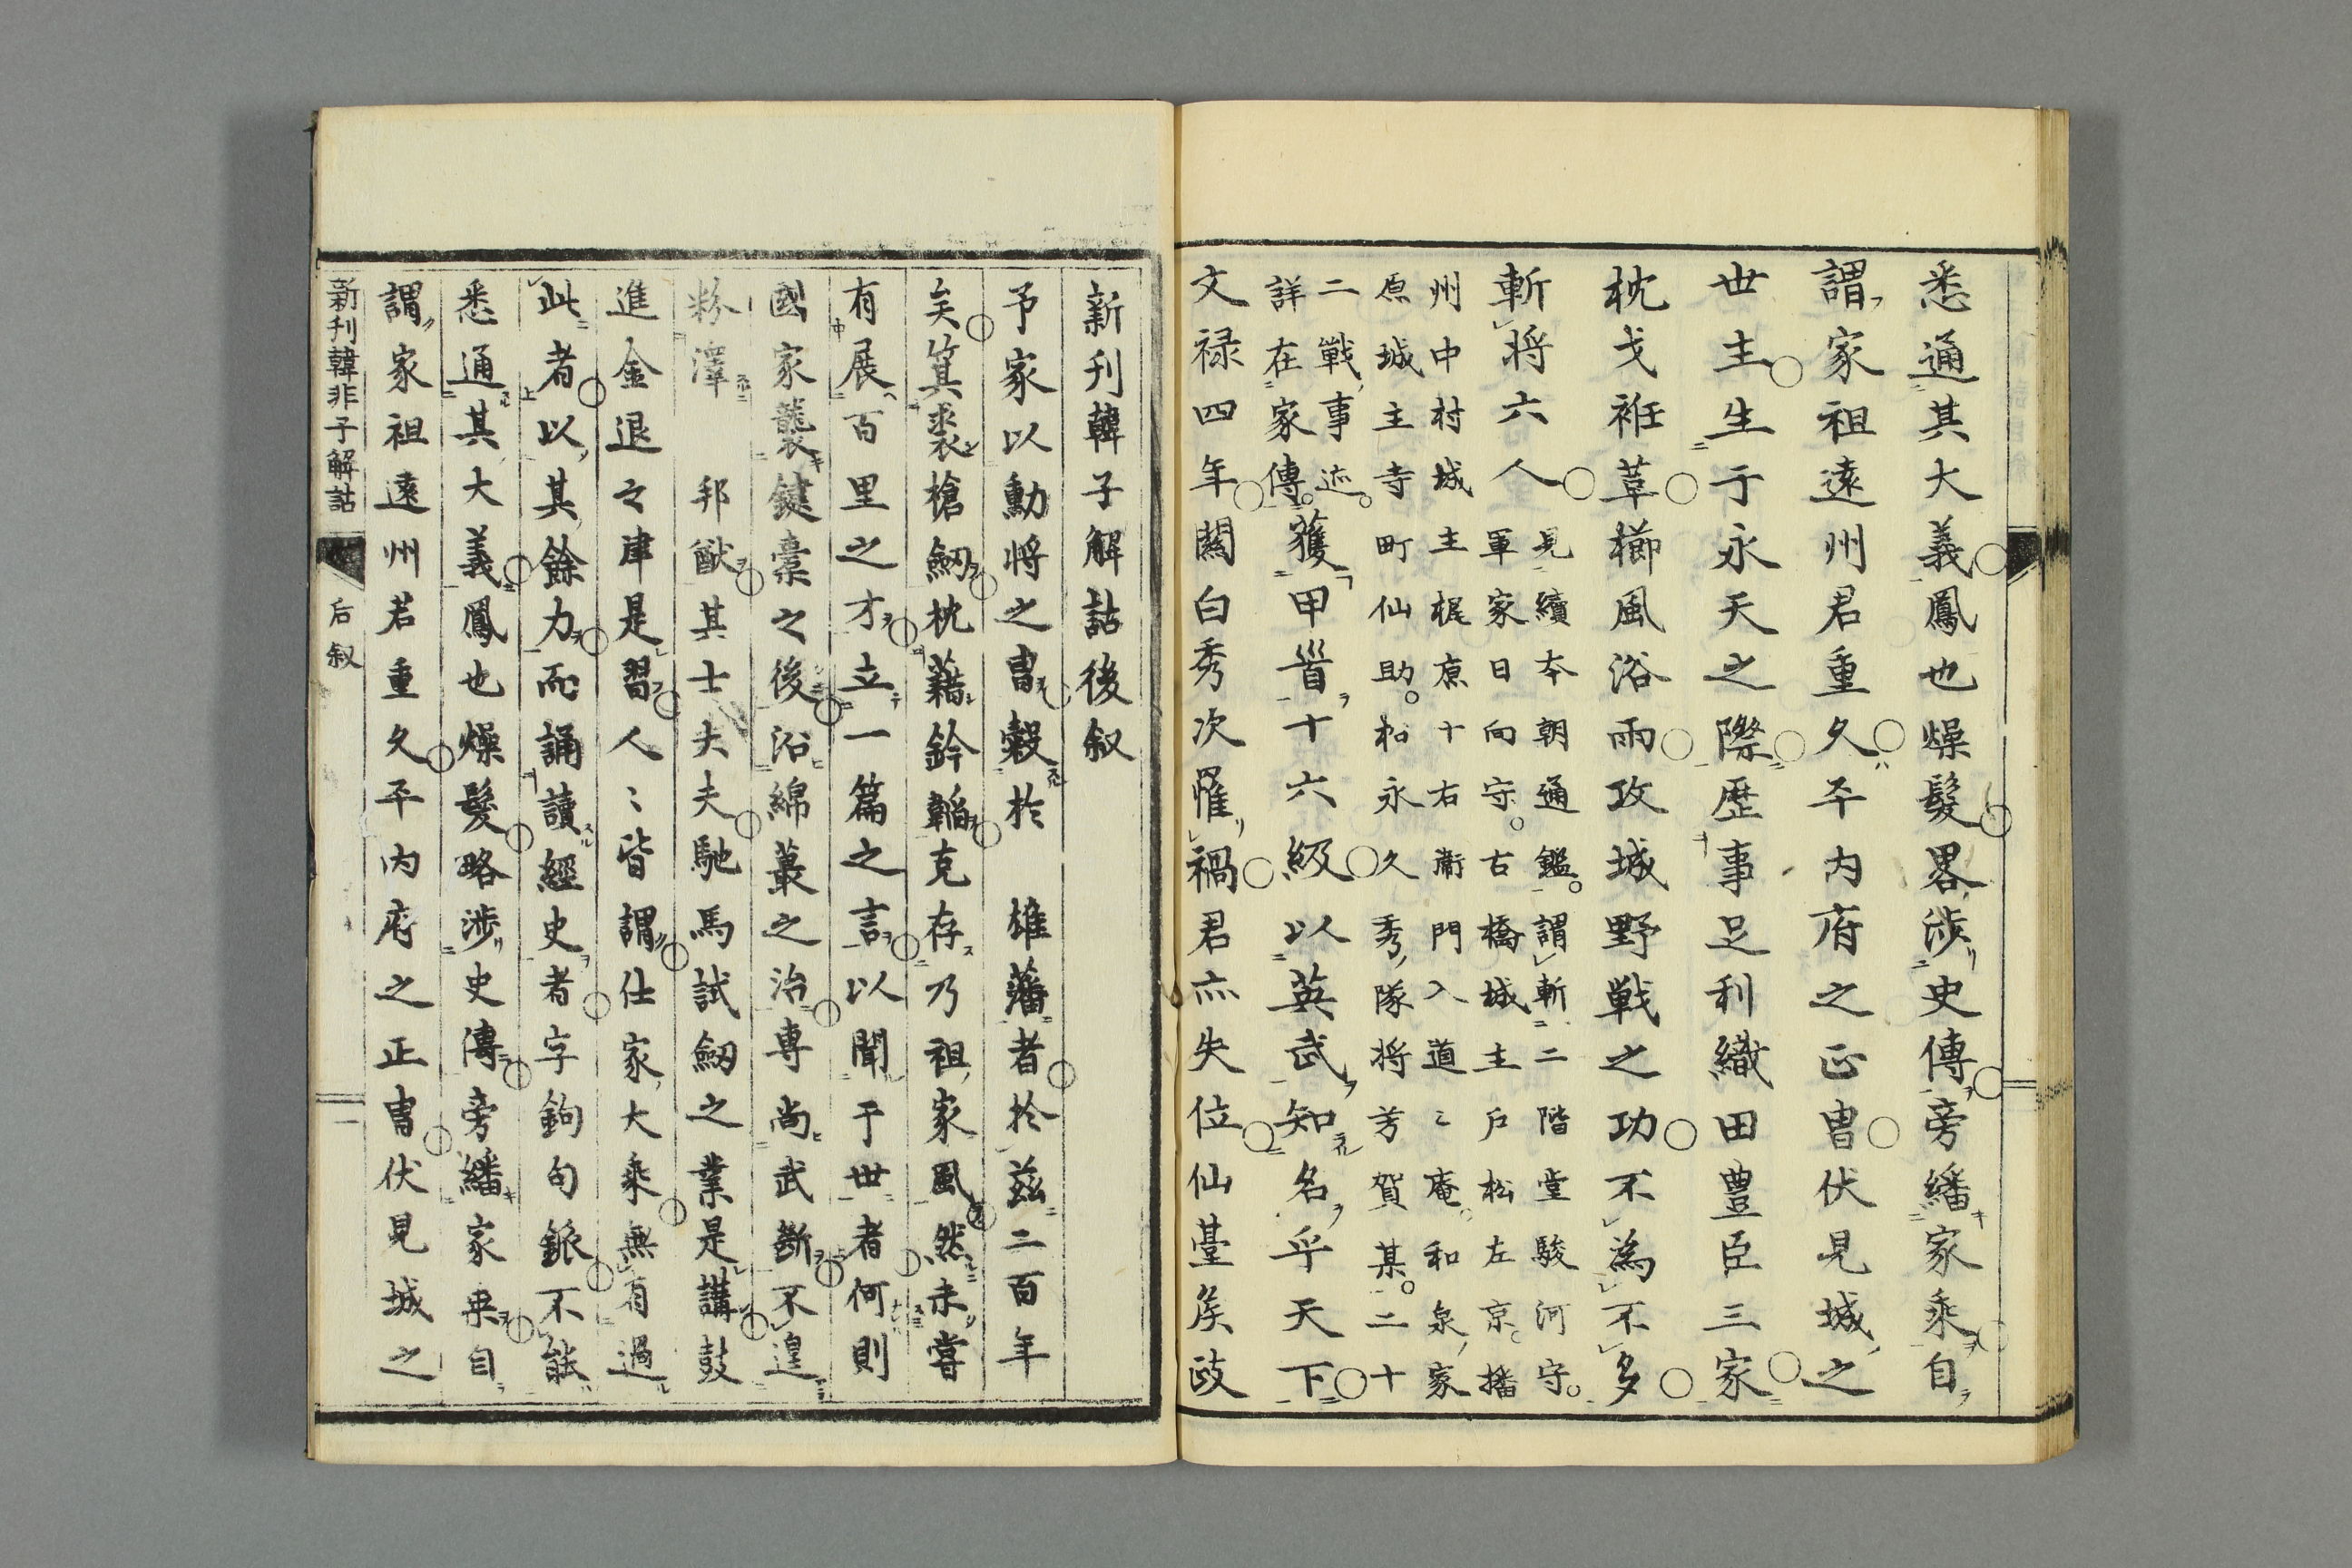 悉通其大義鳳也燥髮畧渉史傳旁繙家乘自
謂家祖遠州君重久平内府之正冑伏見城之
世主生于永天之際歴事足利織田豊臣三家
枕戈袵革櫛風浴雨攻城野戦之功不為不多
斬将六人
見續本朝通鑑。謂斬二階堂駿河守。
軍家日向守。古橋城主戸松左京。播
州中村城主梶原十右衛門入道〻庵。和泉家
原城主寺町仙助。松永久秀隊将芳賀某。二十
二戦事迹。
詳在家傳。
獲甲首十六級以英武知名乎天下
文禄四年關白秀次罹禍君亦失位仙臺矦政
新刊韓子解詁後叙
予家以勳将之冑穀於　雄藩者於茲二百年
矣箕裘槍劒枕藉鈐韜克存乃祖家風然未嘗
有展百里之才立一篇之言以聞于世者何則
國家襲鍵櫜之後沿綿蕞之治専尚武断不遑
粉澤　邦猷其士大夫馳馬試劒之業是講鼓
進金退之律是習人〻皆謂仕家大乘無有過
此者以其餘力而誦讀經史者字鉤句鈲不能
悉通其大義鳳也燥髮略渉史傳旁繙家乘自
謂家祖遠州君重久平内府之正冑伏見城之
新刊韓非子解詁　后叙　一